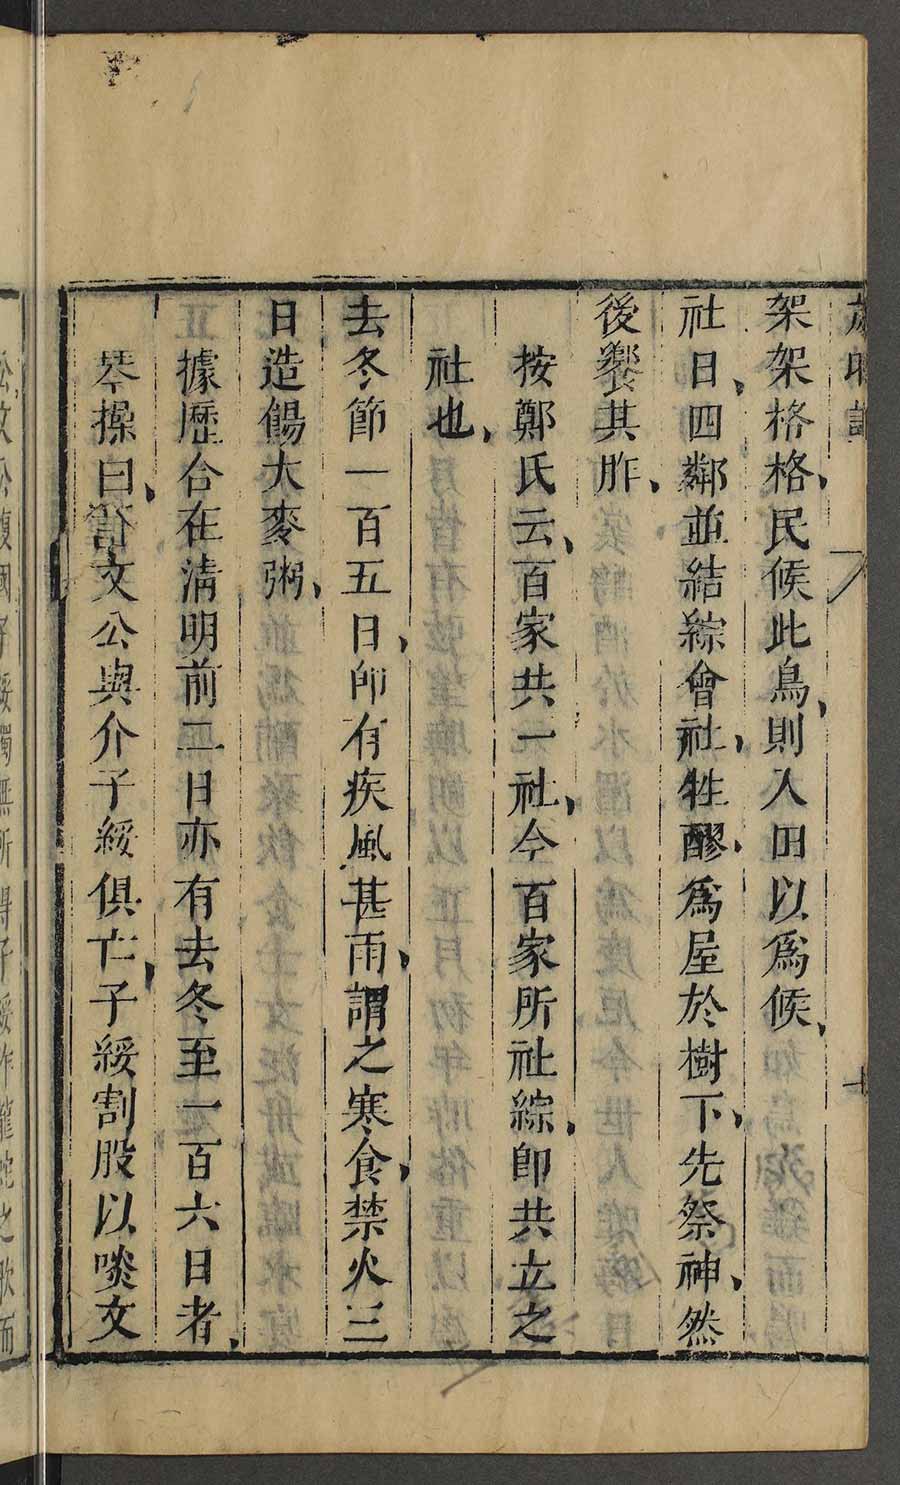 架架格格民候此鳥則入田以爲候
社日四鄰並結綜會社牲醪爲屋於樹下先祭神然
後饗其胙
按鄭氏云百家共一社今百家所社綜即共立之
社也
去冬節一百五日即有疾風甚雨謂之寒食禁火三
日造餳大麥粥
據歷合在清明前二日亦有去冬至一百六日者
琴操曰晉文公與介子綏俱亡子綏割股以啖文